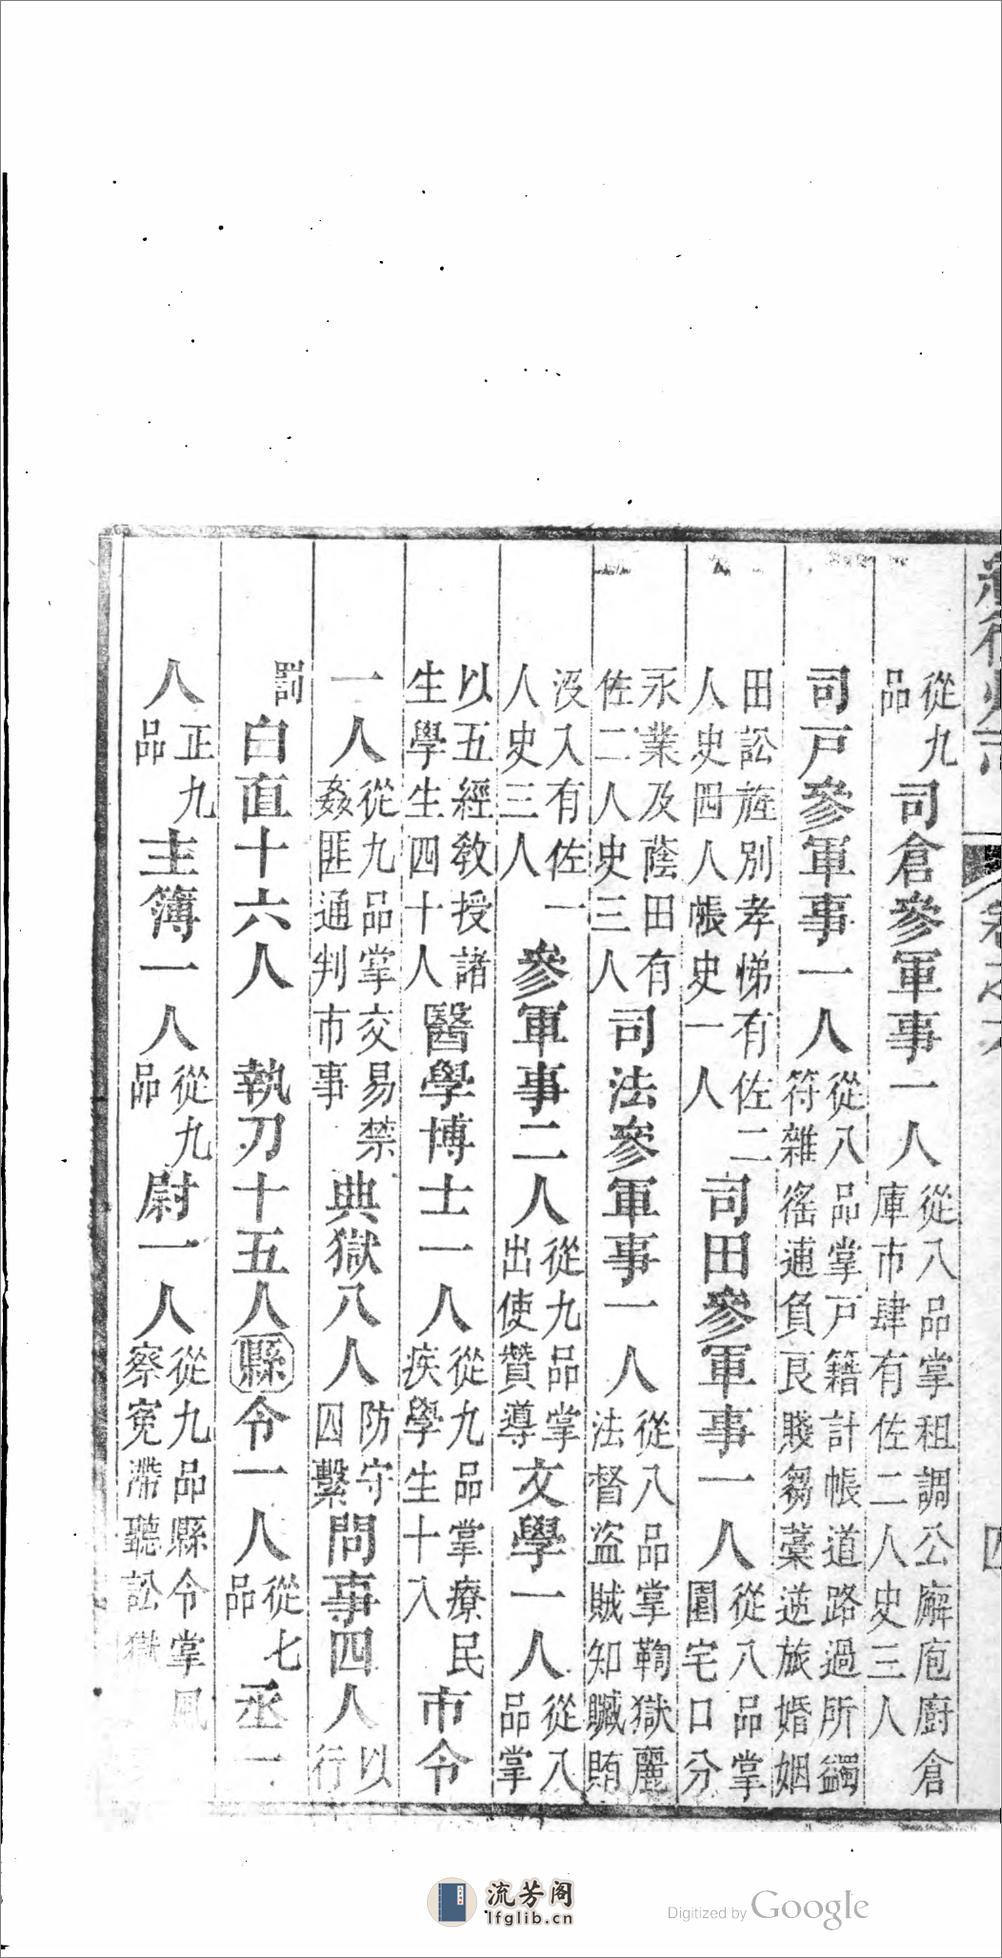 從九品司倉參軍事一人從八品掌租調公廨庖廚倉庫市肆有佐二人史三人
司戸參軍事一人從八品掌戸籍計帳道路過所蠲符雜徭逋負良賤芻藁逆旅婚姻
田訟旌別孝悌有佐二人史四人帳史一人司田參軍事一人從八品掌園宅口分
永業及蔭田有佐二人史三人司法參軍事一人從八品掌鞫獄麗法督盜賊知贓賄
沒入有佐一人史三人參軍事二人從九品掌出使贊導文學一人從八品掌
以五經敎授諸生學生四十人醫學博士一人從九品掌療民疾學生十人市令
一人從九品掌交易禁姦匪通判市事典獄八人防守囚繫問事四人以行
罰白直十六人 執刀十五人縣令一人從七品丞一
人正九品主簿一人從九品尉一人從九品縣令掌風察寃滯聽訟獄
卷之六
四
流芳阁
lfglib.cn
Digitized by Google